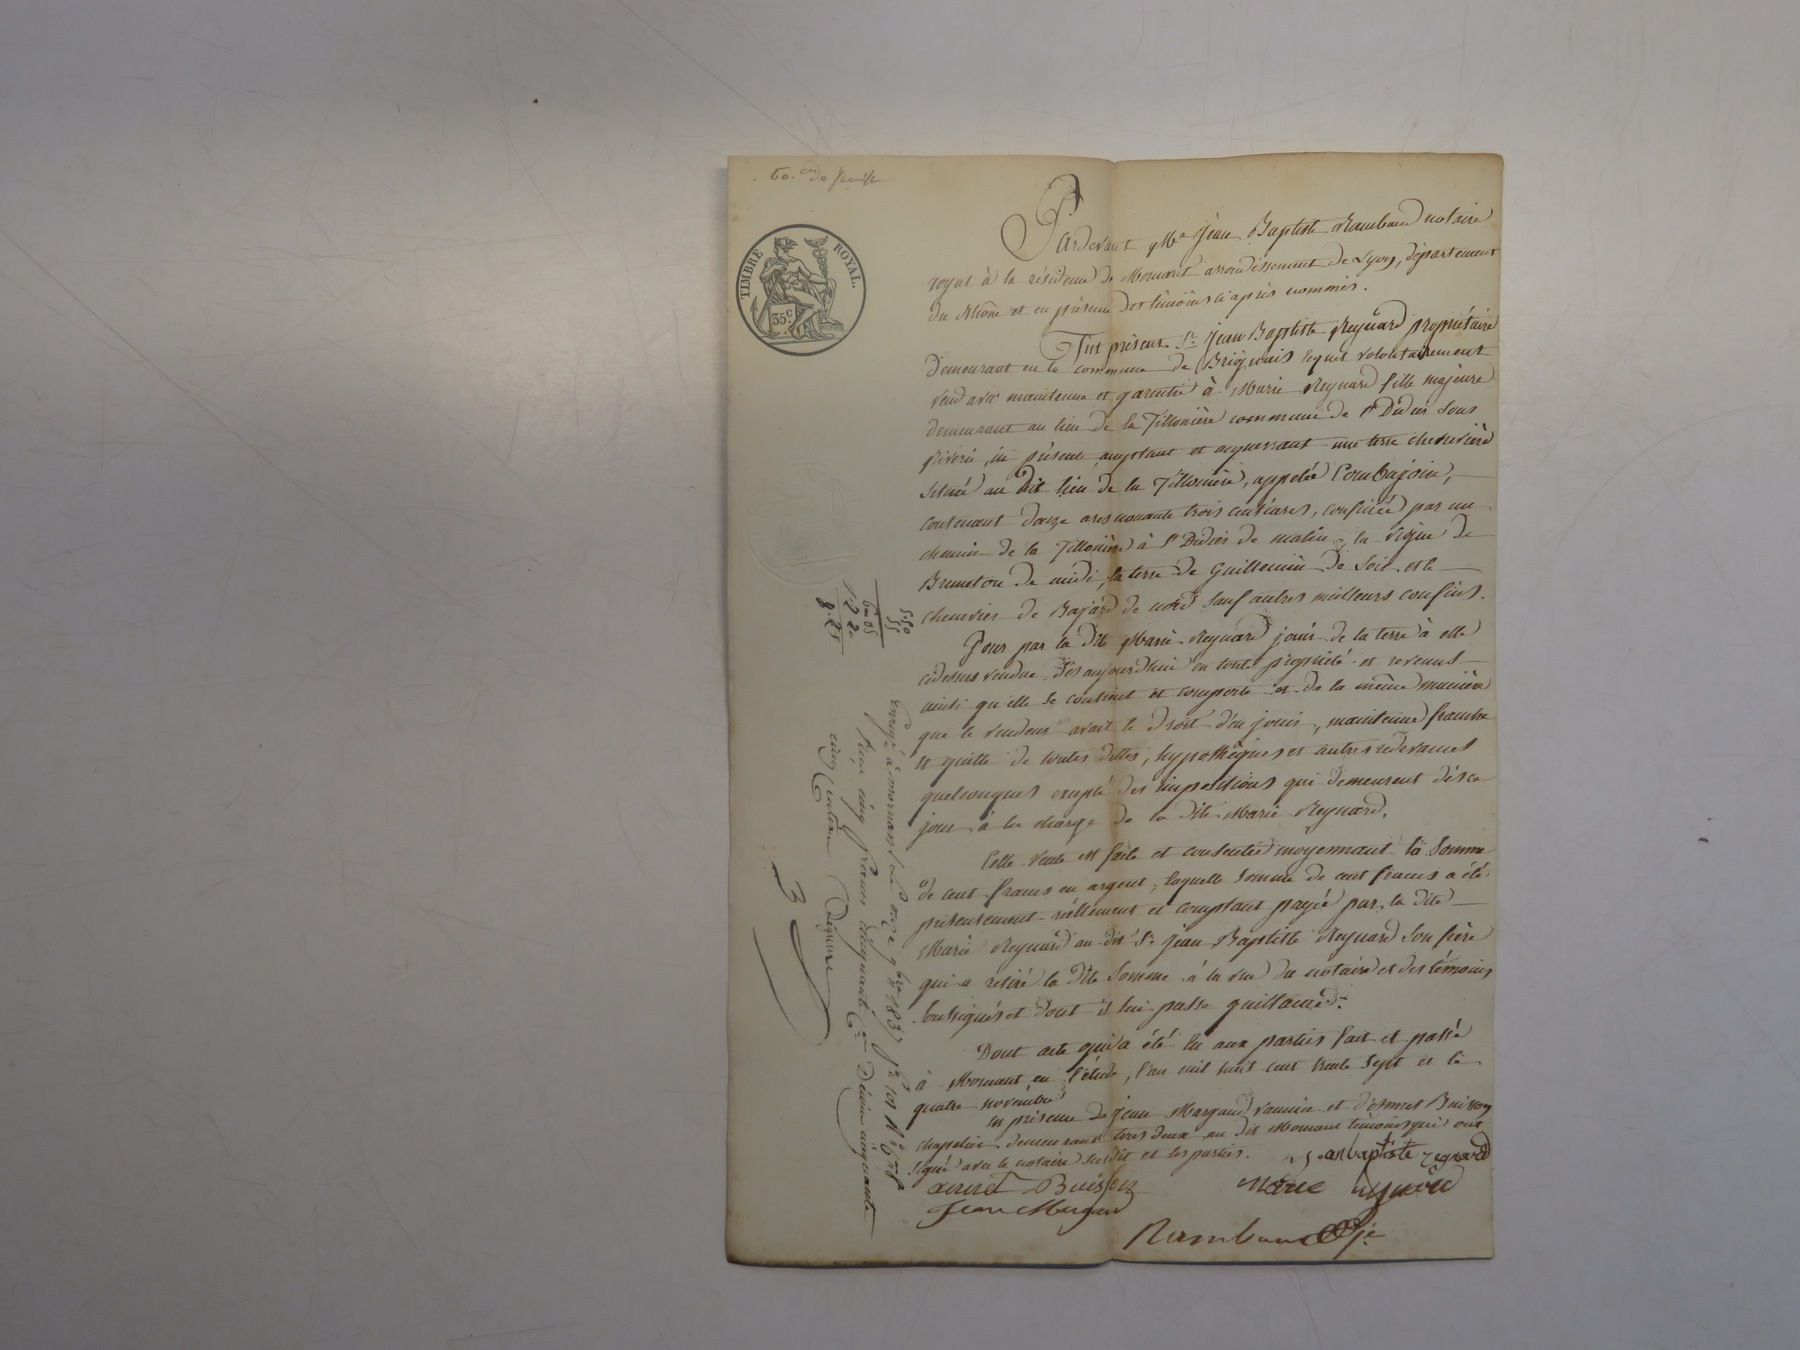 60. cm de feuille
TIMBRE ROYAL.
35 c
Pardevant Me Jean Baptiste Rambaud notaire
royal à la résidence de Mornant arrondissement de Lyon, département
du Rhône et en présence des témoins ci après nommés.
Fut présent Sr Jean Baptiste Reynard propriétaire
demeurant en la commune de Brignais lequel volontairement
vend avec maintenue et garentie à Marie Reynard fille majeure
demeurant au lieu de la Jillonière commune de St Didier sous
Riverie, ici présente acceptant et acquérant une terre chenevière
située au dit lieu de la Jillonière, appelée Combajoin,
contenant douze ares nonante trois centiares, confinée par un
chemin de la Jillonière à St Didier de matin, la vigne de
Bruneton de midi, la terre de Guillemin de soir et le
chenevier de Bajard de nord sauf autres meilleurs confins.
Pour par la dite Marie Reynard jouir de la terre à elle
cidessus vendue dès aujourd'hui en toute propriété et revenus
ainsi qu'elle se contient et comporte et de la même manière
que le vendeur avait le droit d'en jouir, maintenue franche
et quitte de toutes dettes, hypothèques et autres redevances
quelconques excepté des impositions qui demeurent dès ce
jour à la charge de la dite Marie Reynard.
Cette vente est faite et consentie moyennant la somme
de cent francs en argent, laquelle somme de cent francs a été
présentement réellement et comptant payée par la dite
Marie Reynard au dit Sr Jean Baptiste Reynard son frère
qui a retiré la dite somme à la vue du notaire et des témoins
soussignés et dont il lui passe quittance.
Dont acte qui a été lu aux parties fait et passé
à Mornant en l'étude, l'an mil huit cent trente sept et le
quatre novembre
en présence de Jean Margaud vannier et d'esmet Buisson
chapelier demeurant tous deux au dit Mornant témoins qui ont
signé avec le notaire susdit et les parties.
Jean baptiste reynard
Buisson
marie reynard
Jean Margaud
Rambaud
5.50
55
6-05
2-20
8.25
Enregé à mornant le onze 9bre 1837
reçu cinq francs cinquante cmes Décime cinquante
cinq centimes